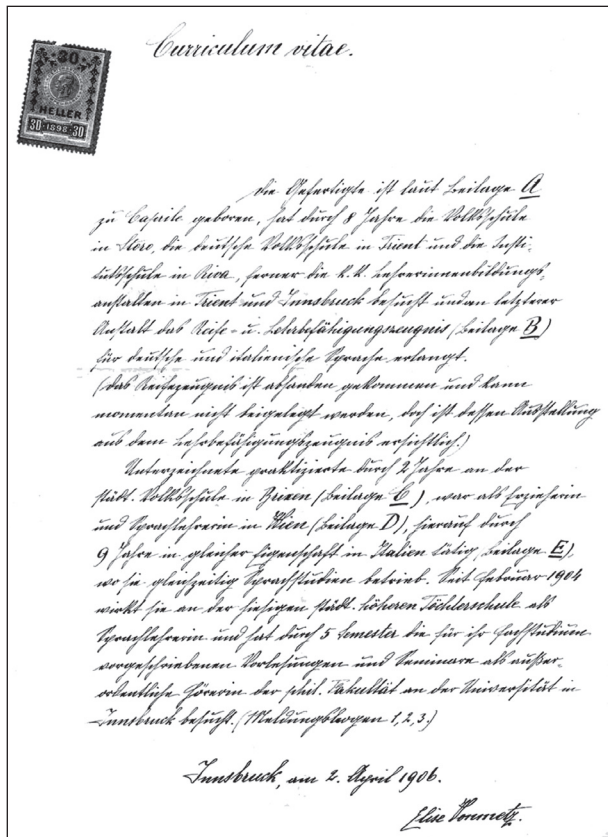 Curriculum vitae.
30
HELLER
30 1898 30
Die Gefertigte ist laut Beilage A
zu geboren, hat durch 8 Jahre die Volksschule
in Storo, die deutsche Volksschule in Trient und die Insti-
tutsschule in Riva, ferner die k. k. Lehrerinnenbildungs-
anstalten in Trient und Innsbruck besucht und an letzterer
Anstalt das Reife- u. Lehrbefähigungszeugnis (Beilage B)
für deutsche und italienische Sprache erlangt.
(Das Reifezeugnis ist abhanden gekommen und kann
momentan nicht beigelegt werden, doch ist dessen Ausstellung
aus dem Lehrbefähigungszeugnis ersichtlich.)
Unterzeichnete praktizierte durch 2 Jahre an der
städt. Volksschule in Brixen (Beilage C), war als Erzieherin
und Sprachlehrerin in Wien (Beilage D), hierauf durch
9 Jahre in gleicher Eigenschaft in Italien tätig, Beilage E),
wo sie gleichzeitig Sprachstudien betrieb. Seit Februar 1904
wirkt sie an der hiesigen städt. höheren Töchterschule als
Sprachlehrerin und hat durch 5 Semester die für ihr Fachstudium
vorgeschriebenen Vorlesungen und Seminare als außer-
ordentliche Hörerin der phil. Fakultät an der Universität in
Innsbruck besucht. (Meldungsbogen 1, 2, 3.)
Innsbruck, am 2. April 1906.
Elise